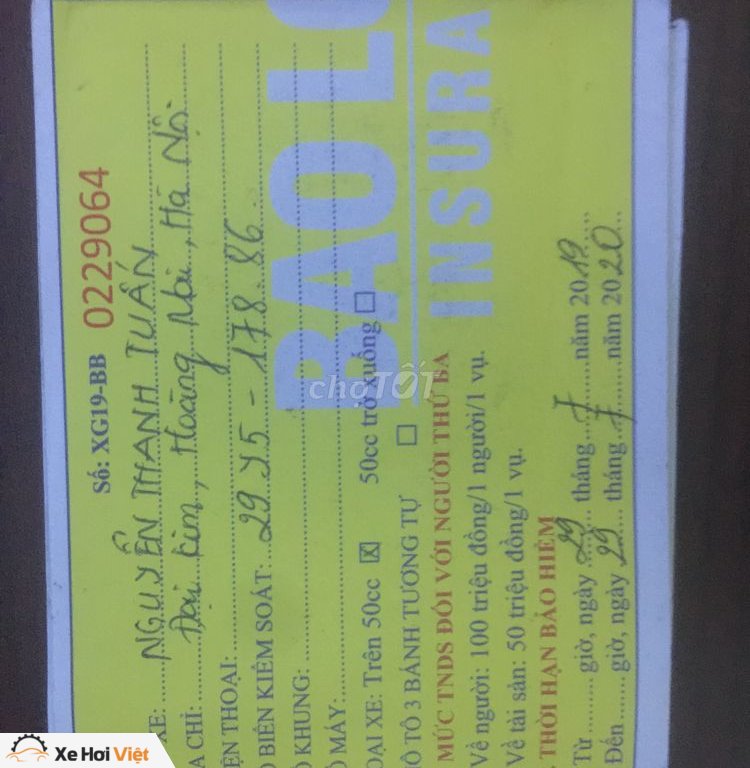 Số: XG19-BB 0229064
XE: NGUYỄN THANH TUẤN
A CHỈ: Đại Kim, Hoàng Mai, Hà Nội
ỆN THOẠI:
BIỂN KIỂM SOÁT: 29Y5-178.86
KHUNG:
MÁY:
OẠI XE: Trên 50cc ☒ 50cc trở xuống ☐
Ô TÔ 3 BÁNH TƯƠNG TỰ ☐
MỨC TNDS ĐỐI VỚI NGƯỜI THỨ BA
Về người: 100 triệu đồng/1 người/1 vụ.
Về tài sản: 50 triệu đồng/1 vụ.
THỜI HẠN BẢO HIỂM
Từ ........ giờ, ngày 29 tháng 7 năm 2019
Đến ....... giờ, ngày 29 tháng 7 năm 2020
BAO LO
INSURA
chợTỐT
Xe Hơi Việt